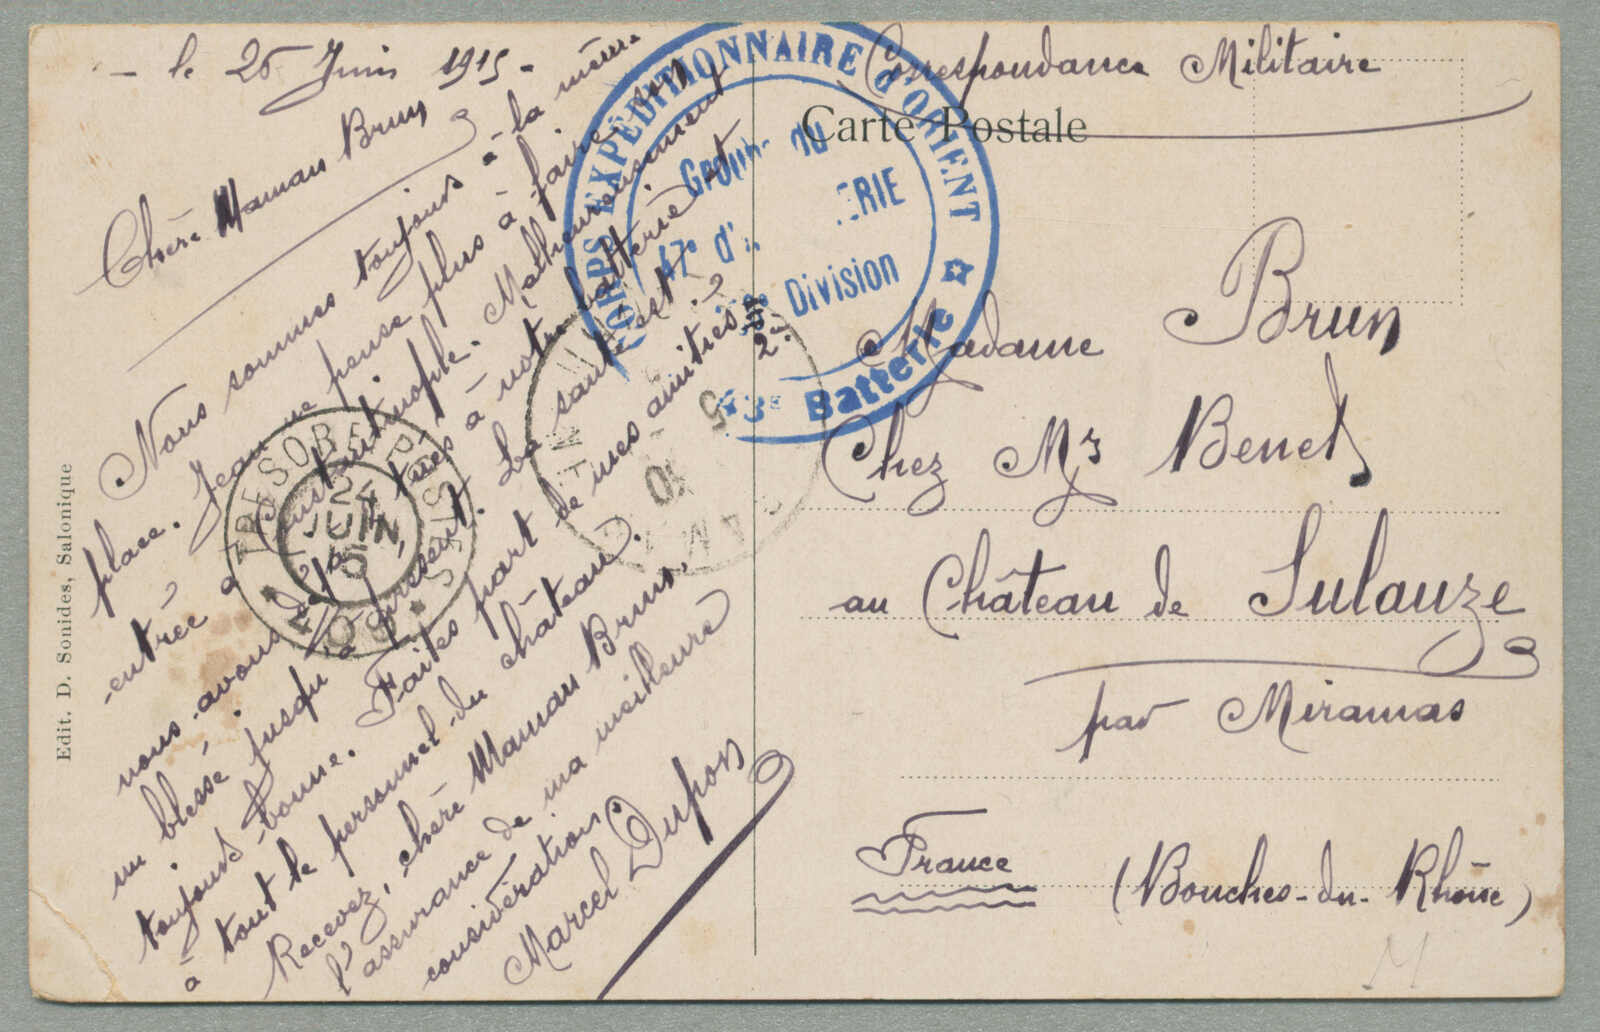 - le 25 Juin 1915 -
Chère Maman Brun
Nous sommes toujours à la même
place. Jean ne pense plus à faire son
entrée à Constantinople. Malheureusement
nous avons déjà 4 tués à notre batterie et
un blessé jusqu'à présent. La santé est
toujours bonne. Faites part de mes amitiés
à tout le personnel du château.
Recevez, chère Maman Brun,
l'assurance de ma meilleure
considération
Marcel Dupon
Correspondance Militaire
Carte Postale
Madame Brun
Chez Mr Benet
au Château de Sulauze
par Miramas
France (Bouches-du-Rhône)
CORPS EXPÉDITIONNAIRE d'ORIENT
Groupe du
47e d'ERIE
2e Division
3E Batterie
TRESOR ET POSTES
24
JUIN
15
* 504 *
Edit. D. Sonides, Salonique
M